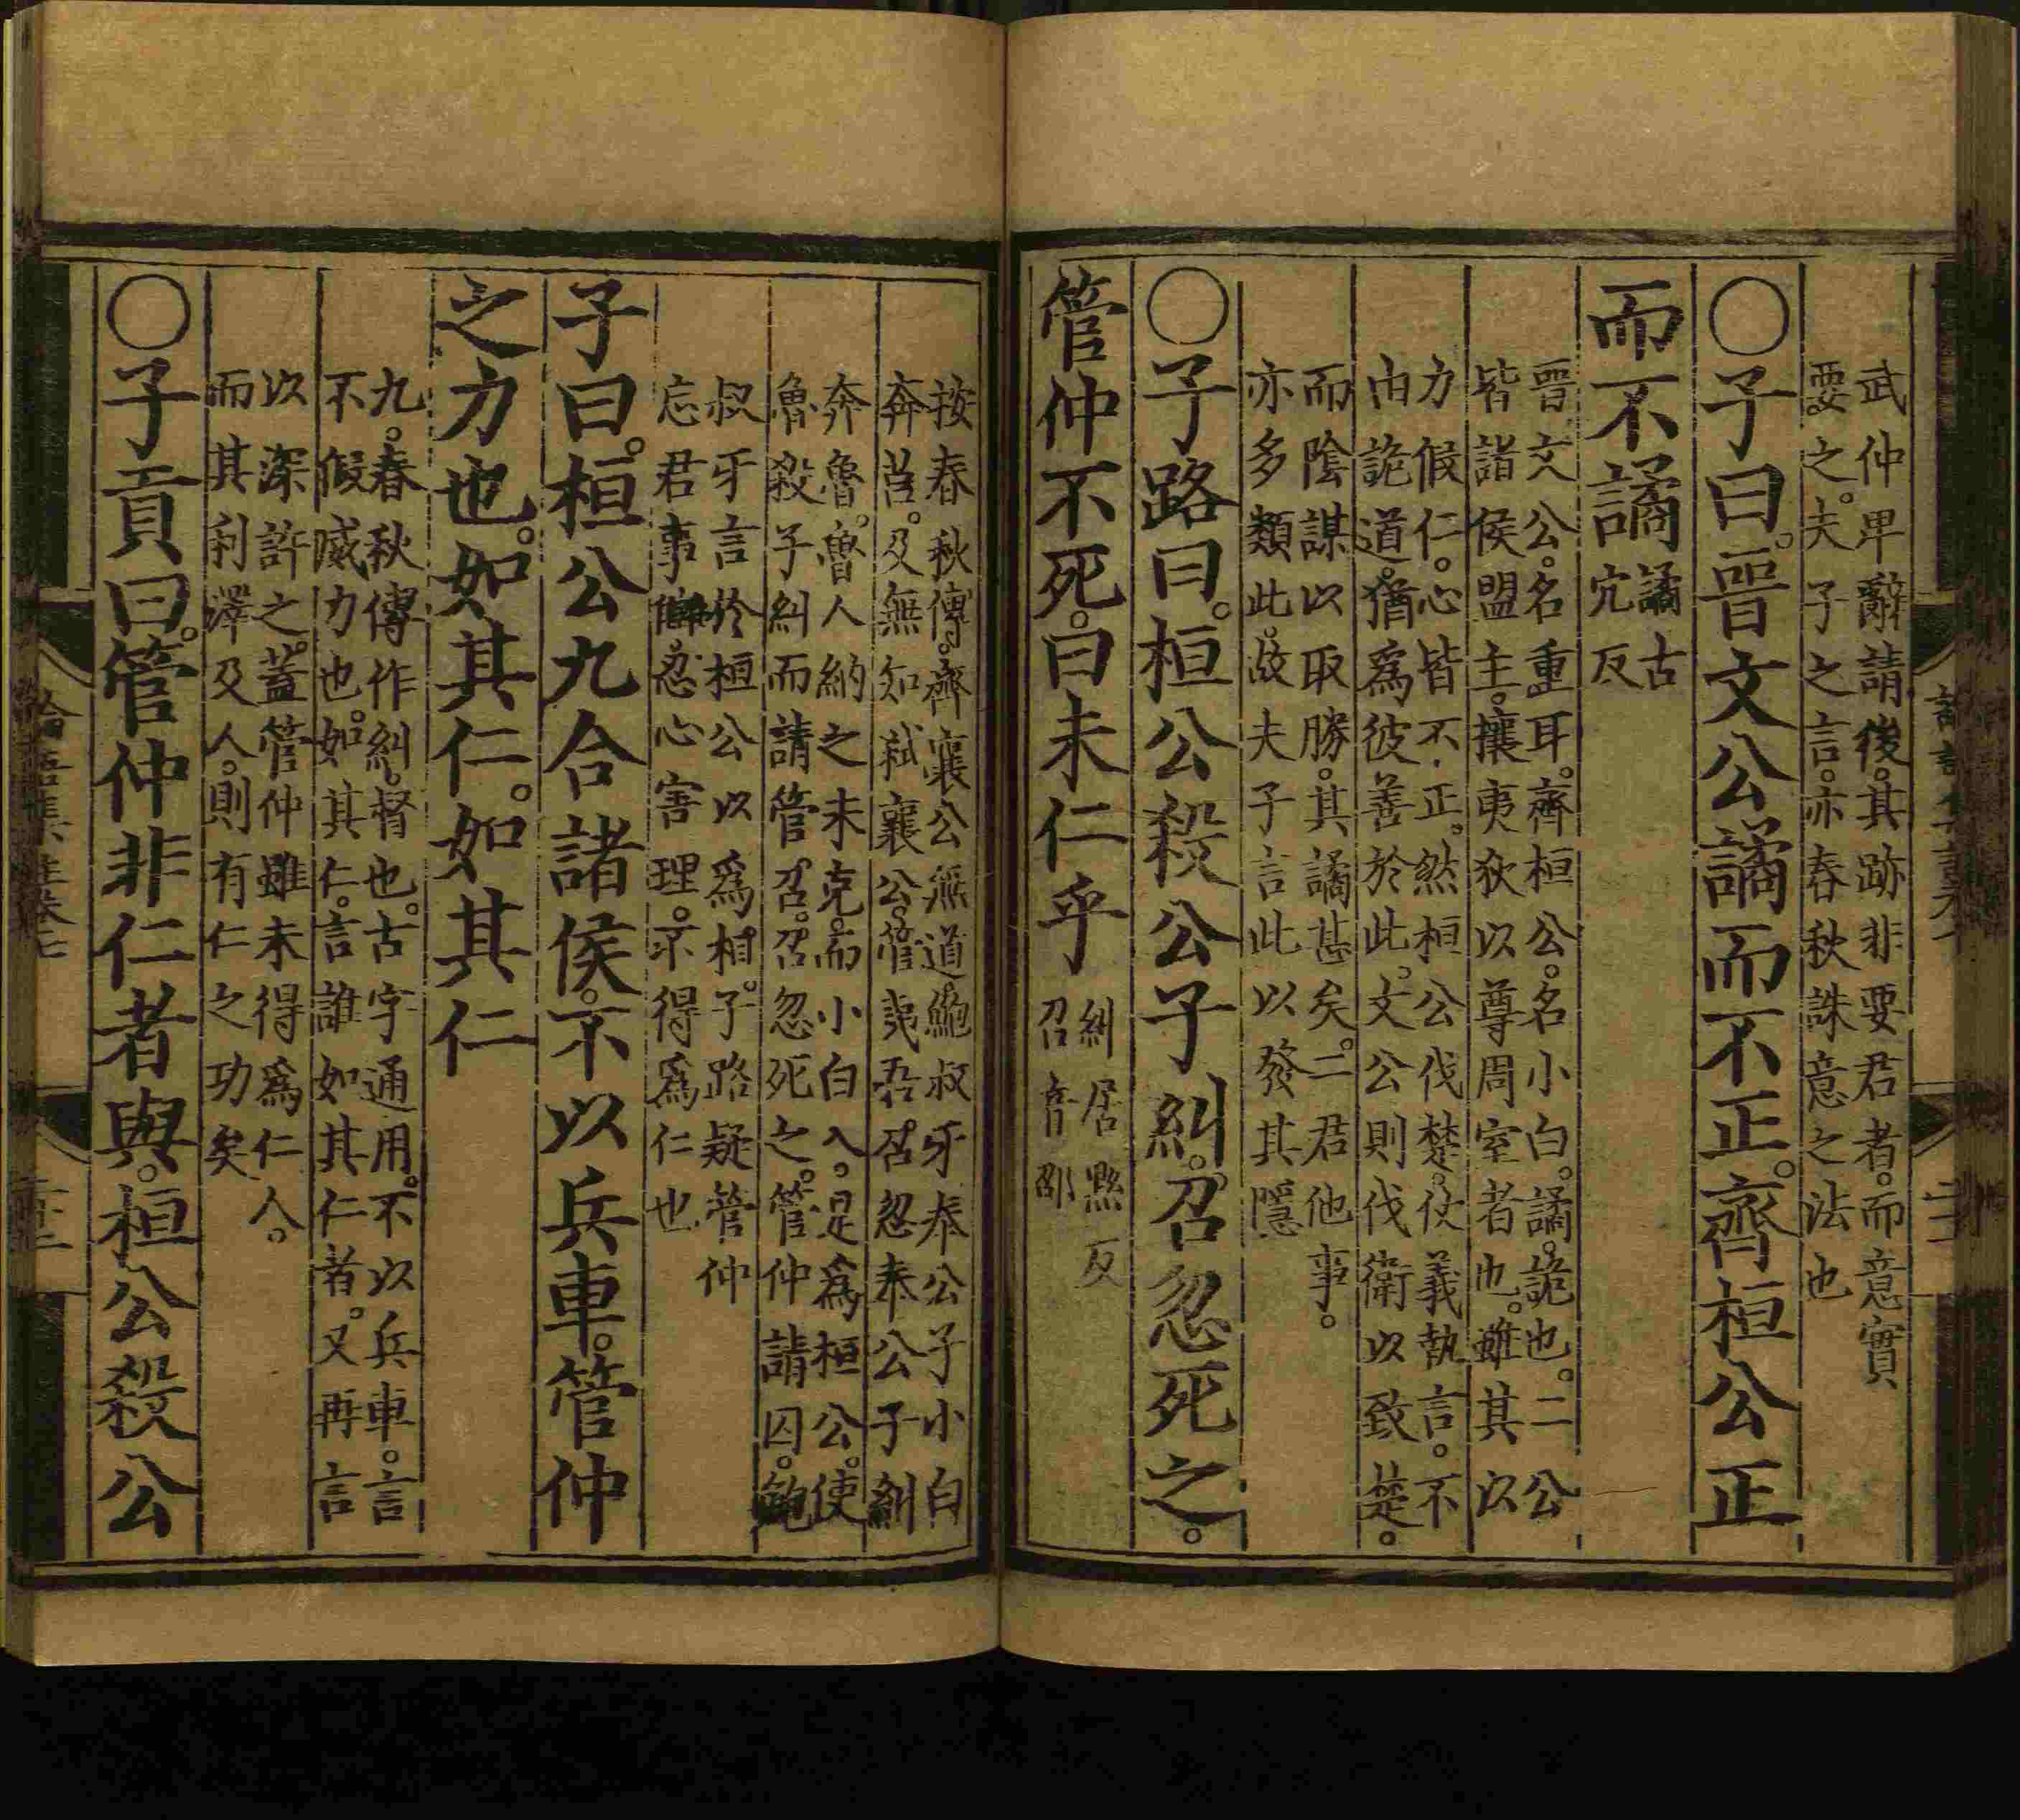 武仲卑辭請後。其跡非要君者。而意實
要之。夫子之言。亦春秋誅意之法也
○子曰。晉文公譎而不正。齊桓公正
而不譎
譎古
宂反
晉文公。名重耳。齊桓公。名小白。譎。詭也。二公
皆諸侯盟主。攘夷狄以尊周室者也。雖其以
力假仁。心皆不正。然桓公伐楚。仗義執言。不
由詭道。猶爲彼善於此。文公則伐衛以致楚。
而陰謀以取勝。其譎甚矣。二君他事。
亦多類此。故夫子言此以發其隱
○子路曰。桓公殺公子糾。召忽死之。
管仲不死。曰未仁乎
糾居黝反
召音邵
按春秋傳。齊襄公無道。鮑叔牙奉公子小白
奔莒。及無知弒襄公。管夷吾。召忽奉公子糾
奔魯。魯人納之未克。而小白入。是爲桓公。使
魯殺子糾而請管召。召忽死之。管仲請囚。鮑
叔牙言於桓公以爲相。子路疑管仲
忘君事讎。忍心害理。不得爲仁也
子曰。桓公九合諸侯。不以兵車。管仲
之力也。如其仁。如其仁
九。春秋傳作糾。督也。古字通用。不以兵車。言
不假威力也。如其仁。言誰如其仁者。又再言
以深許之。蓋管仲雖未得爲仁人。
而其利澤及人。則有仁之功矣
○子貢曰。管仲非仁者與。桓公殺公